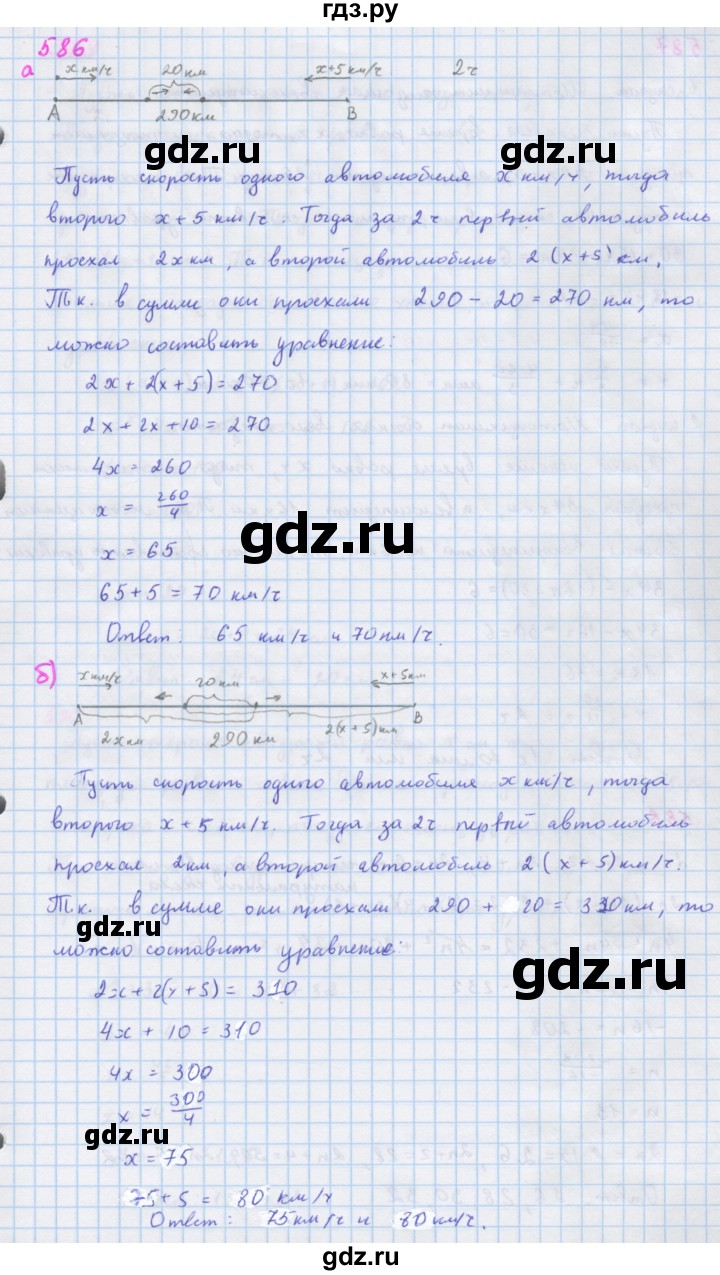 гдз.ру
586
а x км/ч 20 км x+5 км/ч 2ч
A 290 км B
gdz.ru
gdz.ru
Пусть скорость одного автомобиля x км/ч, тогда
второго x + 5 км/ч. Тогда за 2ч первый автомобиль
проехал 2x км, а второй автомобиль 2 (x+5) км.
Т.к. в сумме они проехали 290 - 20 = 270 км, то
можно составить уравнение:
2x + 2(x + 5) = 270
2x + 2x + 10 = 270
4x = 260
x = 260/4
gdz.ru
x = 65
65 + 5 = 70 км/ч
Ответ: 65 км/ч и 70 км/ч.
б) x км/ч 20 км x+5 км
A B
2x км 290 км 2(x+5) км
Пусть скорость одного автомобиля x км/ч, тогда
второго x + 5 км/ч. Тогда за 2ч первый автомобиль
проехал 2км, а второй автомобиль 2 (x + 5) км/ч.
Т.к. в сумме они проехали 290 + 20 = 310 км, то
gdz.ru
можно составить уравнение:
gdz.ru
2x + 2(x + 5) = 310
4x + 10 = 310
4x = 300
x = 300/4
gdz.ru
x = 75
75 + 5 = 80 км/ч
Ответ: 75 км/ч и 80 км/ч.
gdz.ru